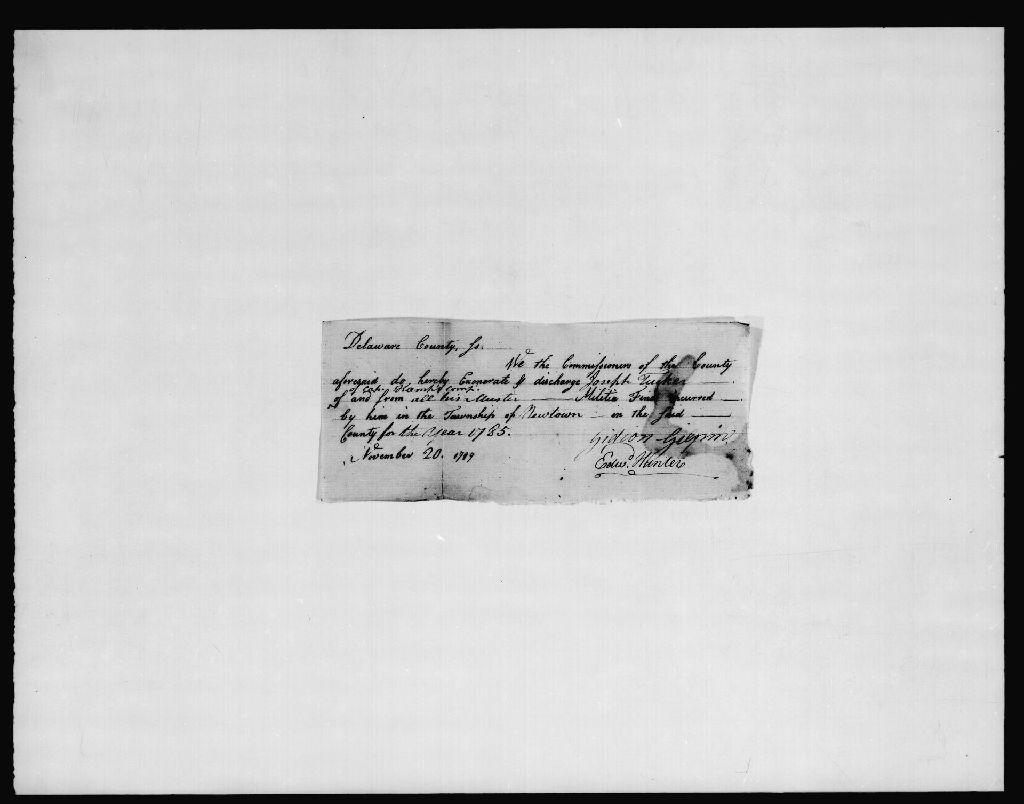 Delaware County, ss.
We the Commissioners of the County
aforesaid do hereby Exonerate & discharge Joseph Tucker
of Cap.
of and from all his Muster Militia Fines incurred
by him in the Township of Newtown in the said
County for the Year 1785.
November 20. 1789
Gideon Gilpin
Edwd. Hunter